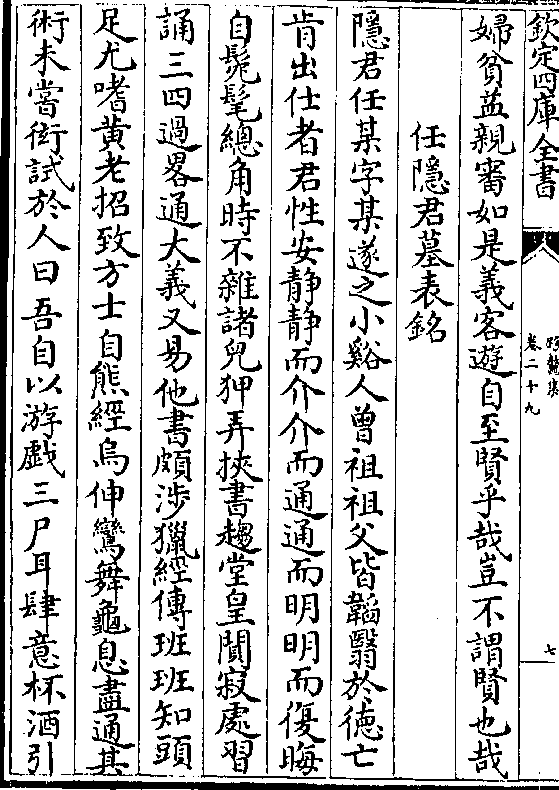 欽定四庫全書
卷二十九
七
婦貧益親審如是義客遊自至賢乎哉豈不謂賢也哉
任隱君墓表銘
隱君任某字某遂之小谿人曾祖祖父皆韜翳於德亡
肯出仕者君性安静静而介介而通通而明明而復晦
自髧髦總角時不雜諸兒狎弄挾書趨堂皇閴寂處習
誦三四過畧通大義又易他書頗涉獵經傳班班知頭
足尤嗜黃老招致方士自熊經鳥伸鸞舞龜息盡通其
術未嘗衒試於人曰吾自以游戲三尸耳肆意杯酒引